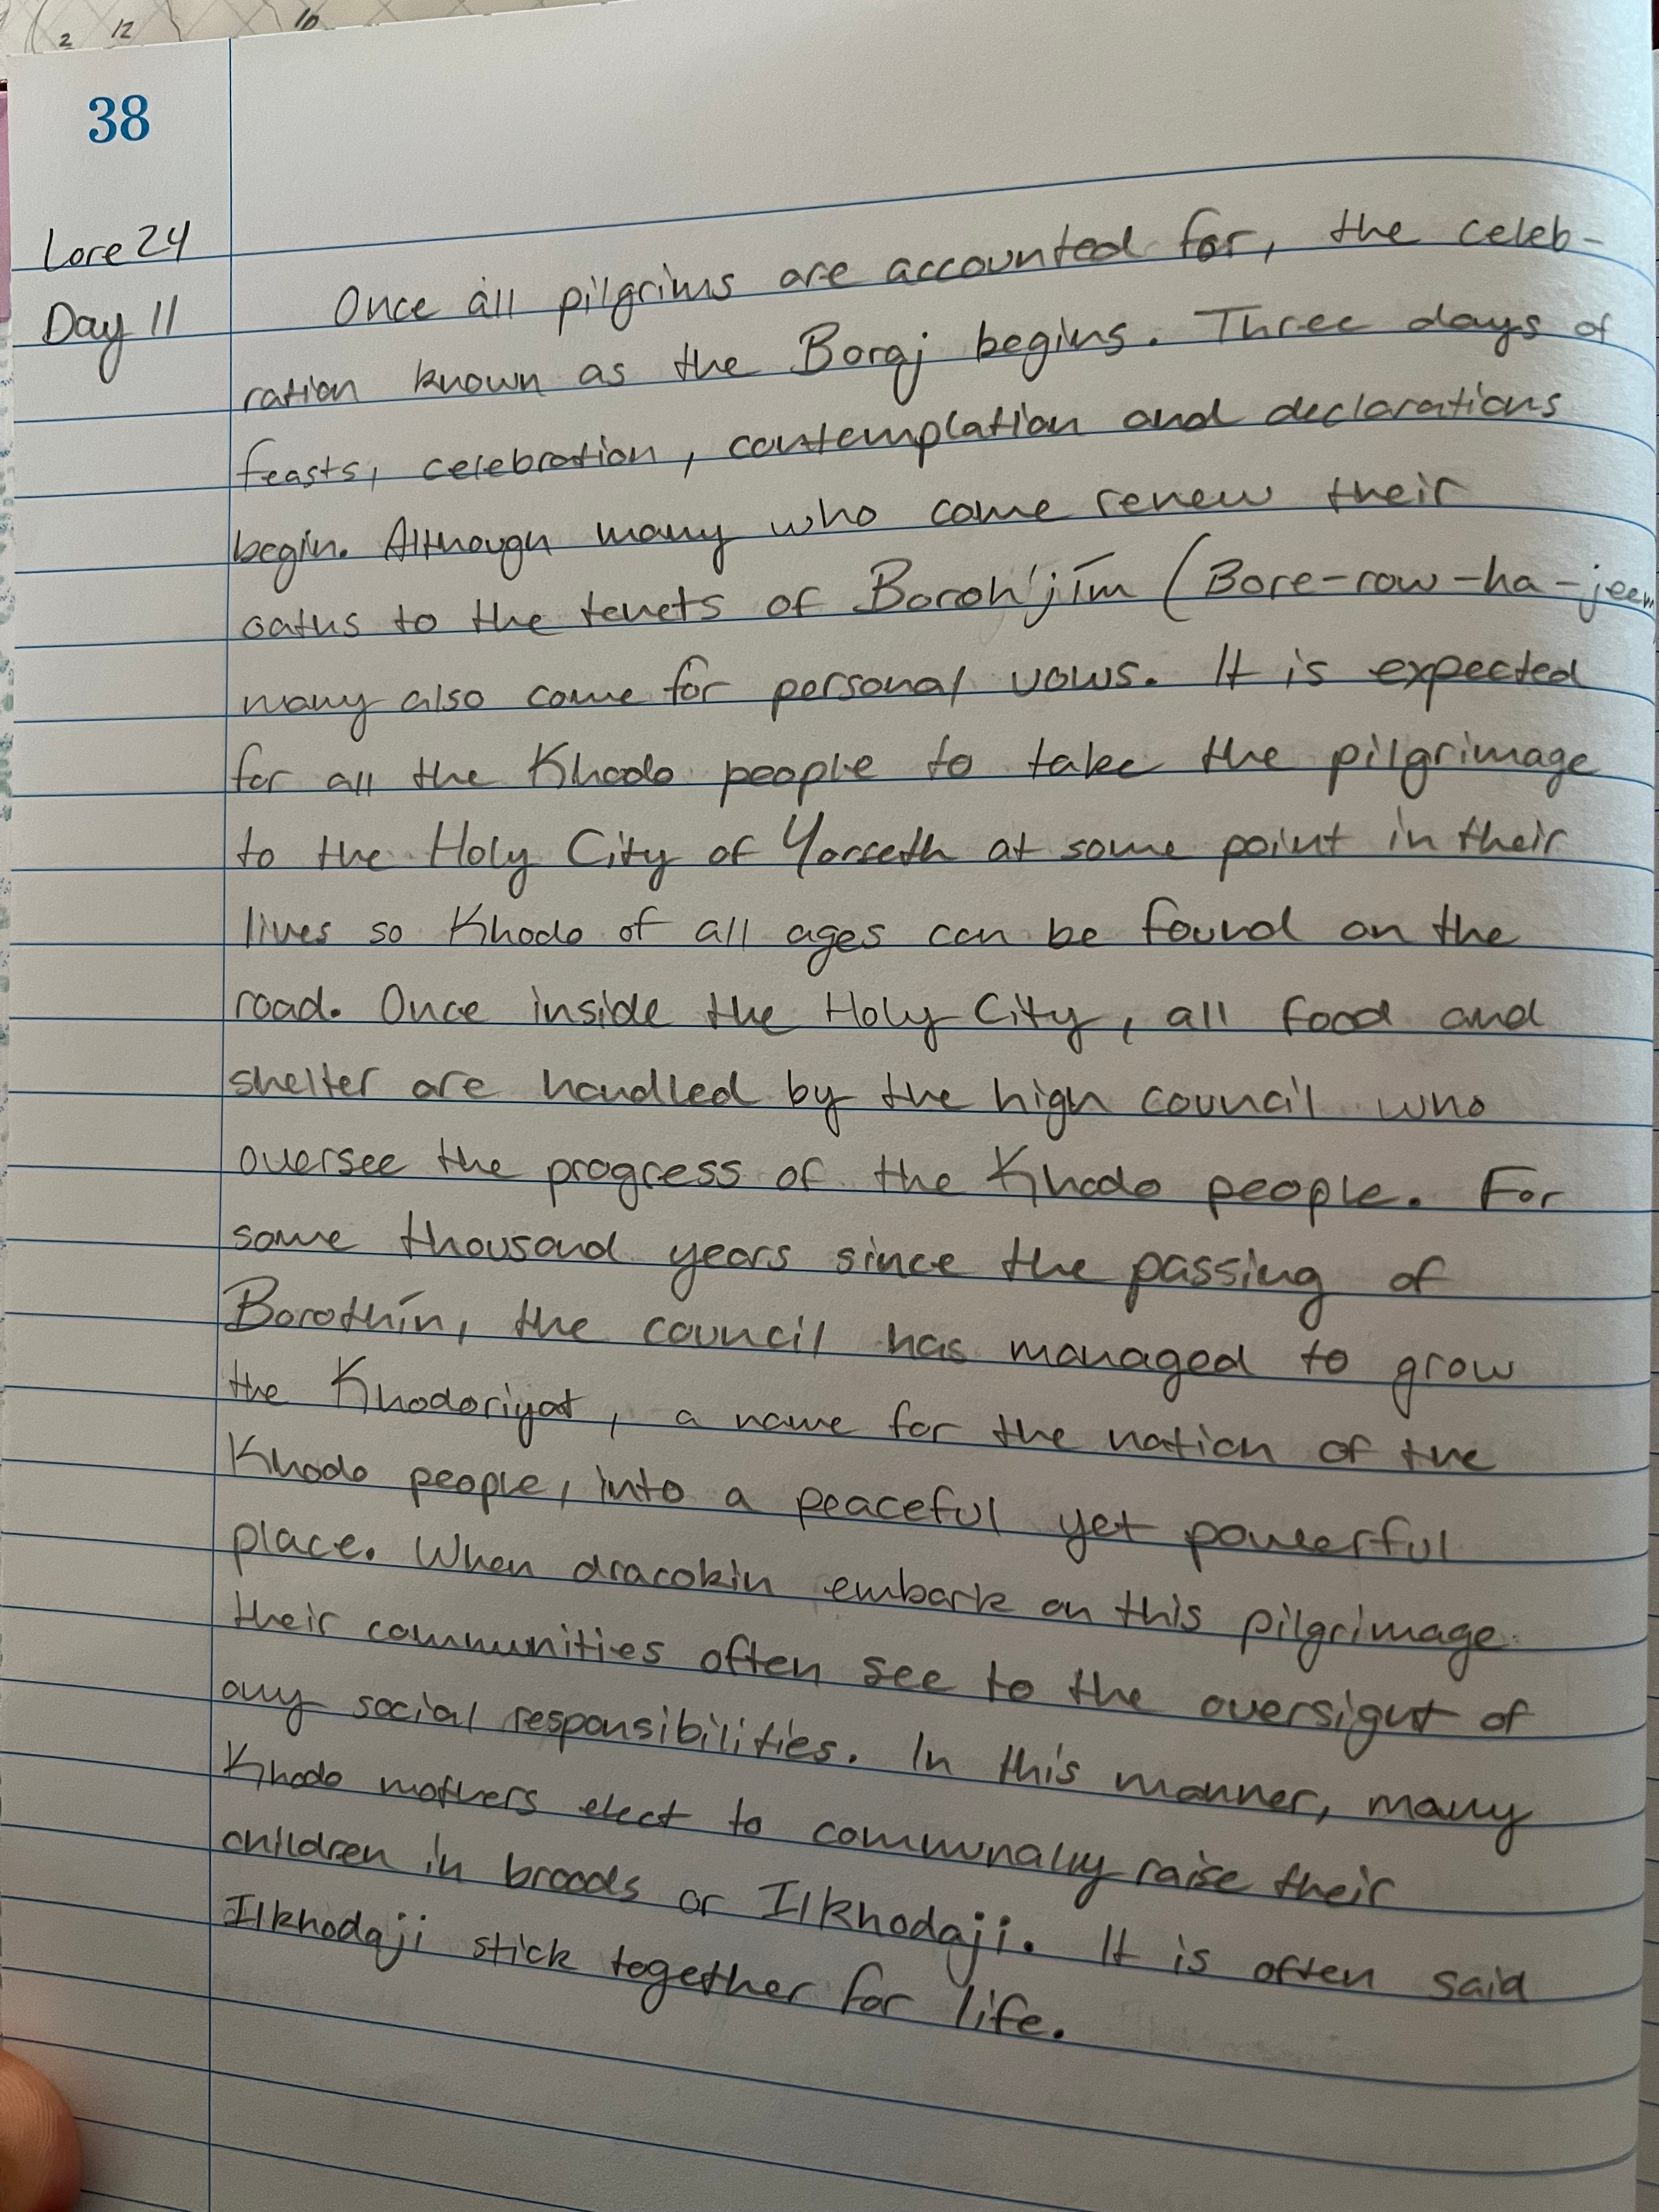 2 12 10
38
Lore 24
Day 11
Once all pilgrims are accounted for, the celeb-
ration known as the Boraj begins. Three days of
feasts, celebration, contemplation and declarations
begin. Although many who come renew their
oaths to the tenets of Boroh'jīm (Bore-row-ha-jeem
many also come for personal vows. It is expected
for all the Khodo people to take the pilgrimage
to the Holy City of Yorseth at some point in their
lives so Khodo of all ages can be found on the
road. Once inside the Holy City, all food and
shelter are handled by the high council who
oversee the progress of the Khodo people. For
some thousand years since the passing of
Borothīn, the council has managed to grow
the Khodoriyat, a name for the nation of the
Khodo people, into a peaceful yet powerful
place. When dracokin embark on this pilgrimage
their communities often see to the oversight of
any social responsibilities. In this manner, many
Khodo mothers elect to communally raise their
children in broods or Ilkhodaji. It is often said
Ilkhodaji stick together for life.